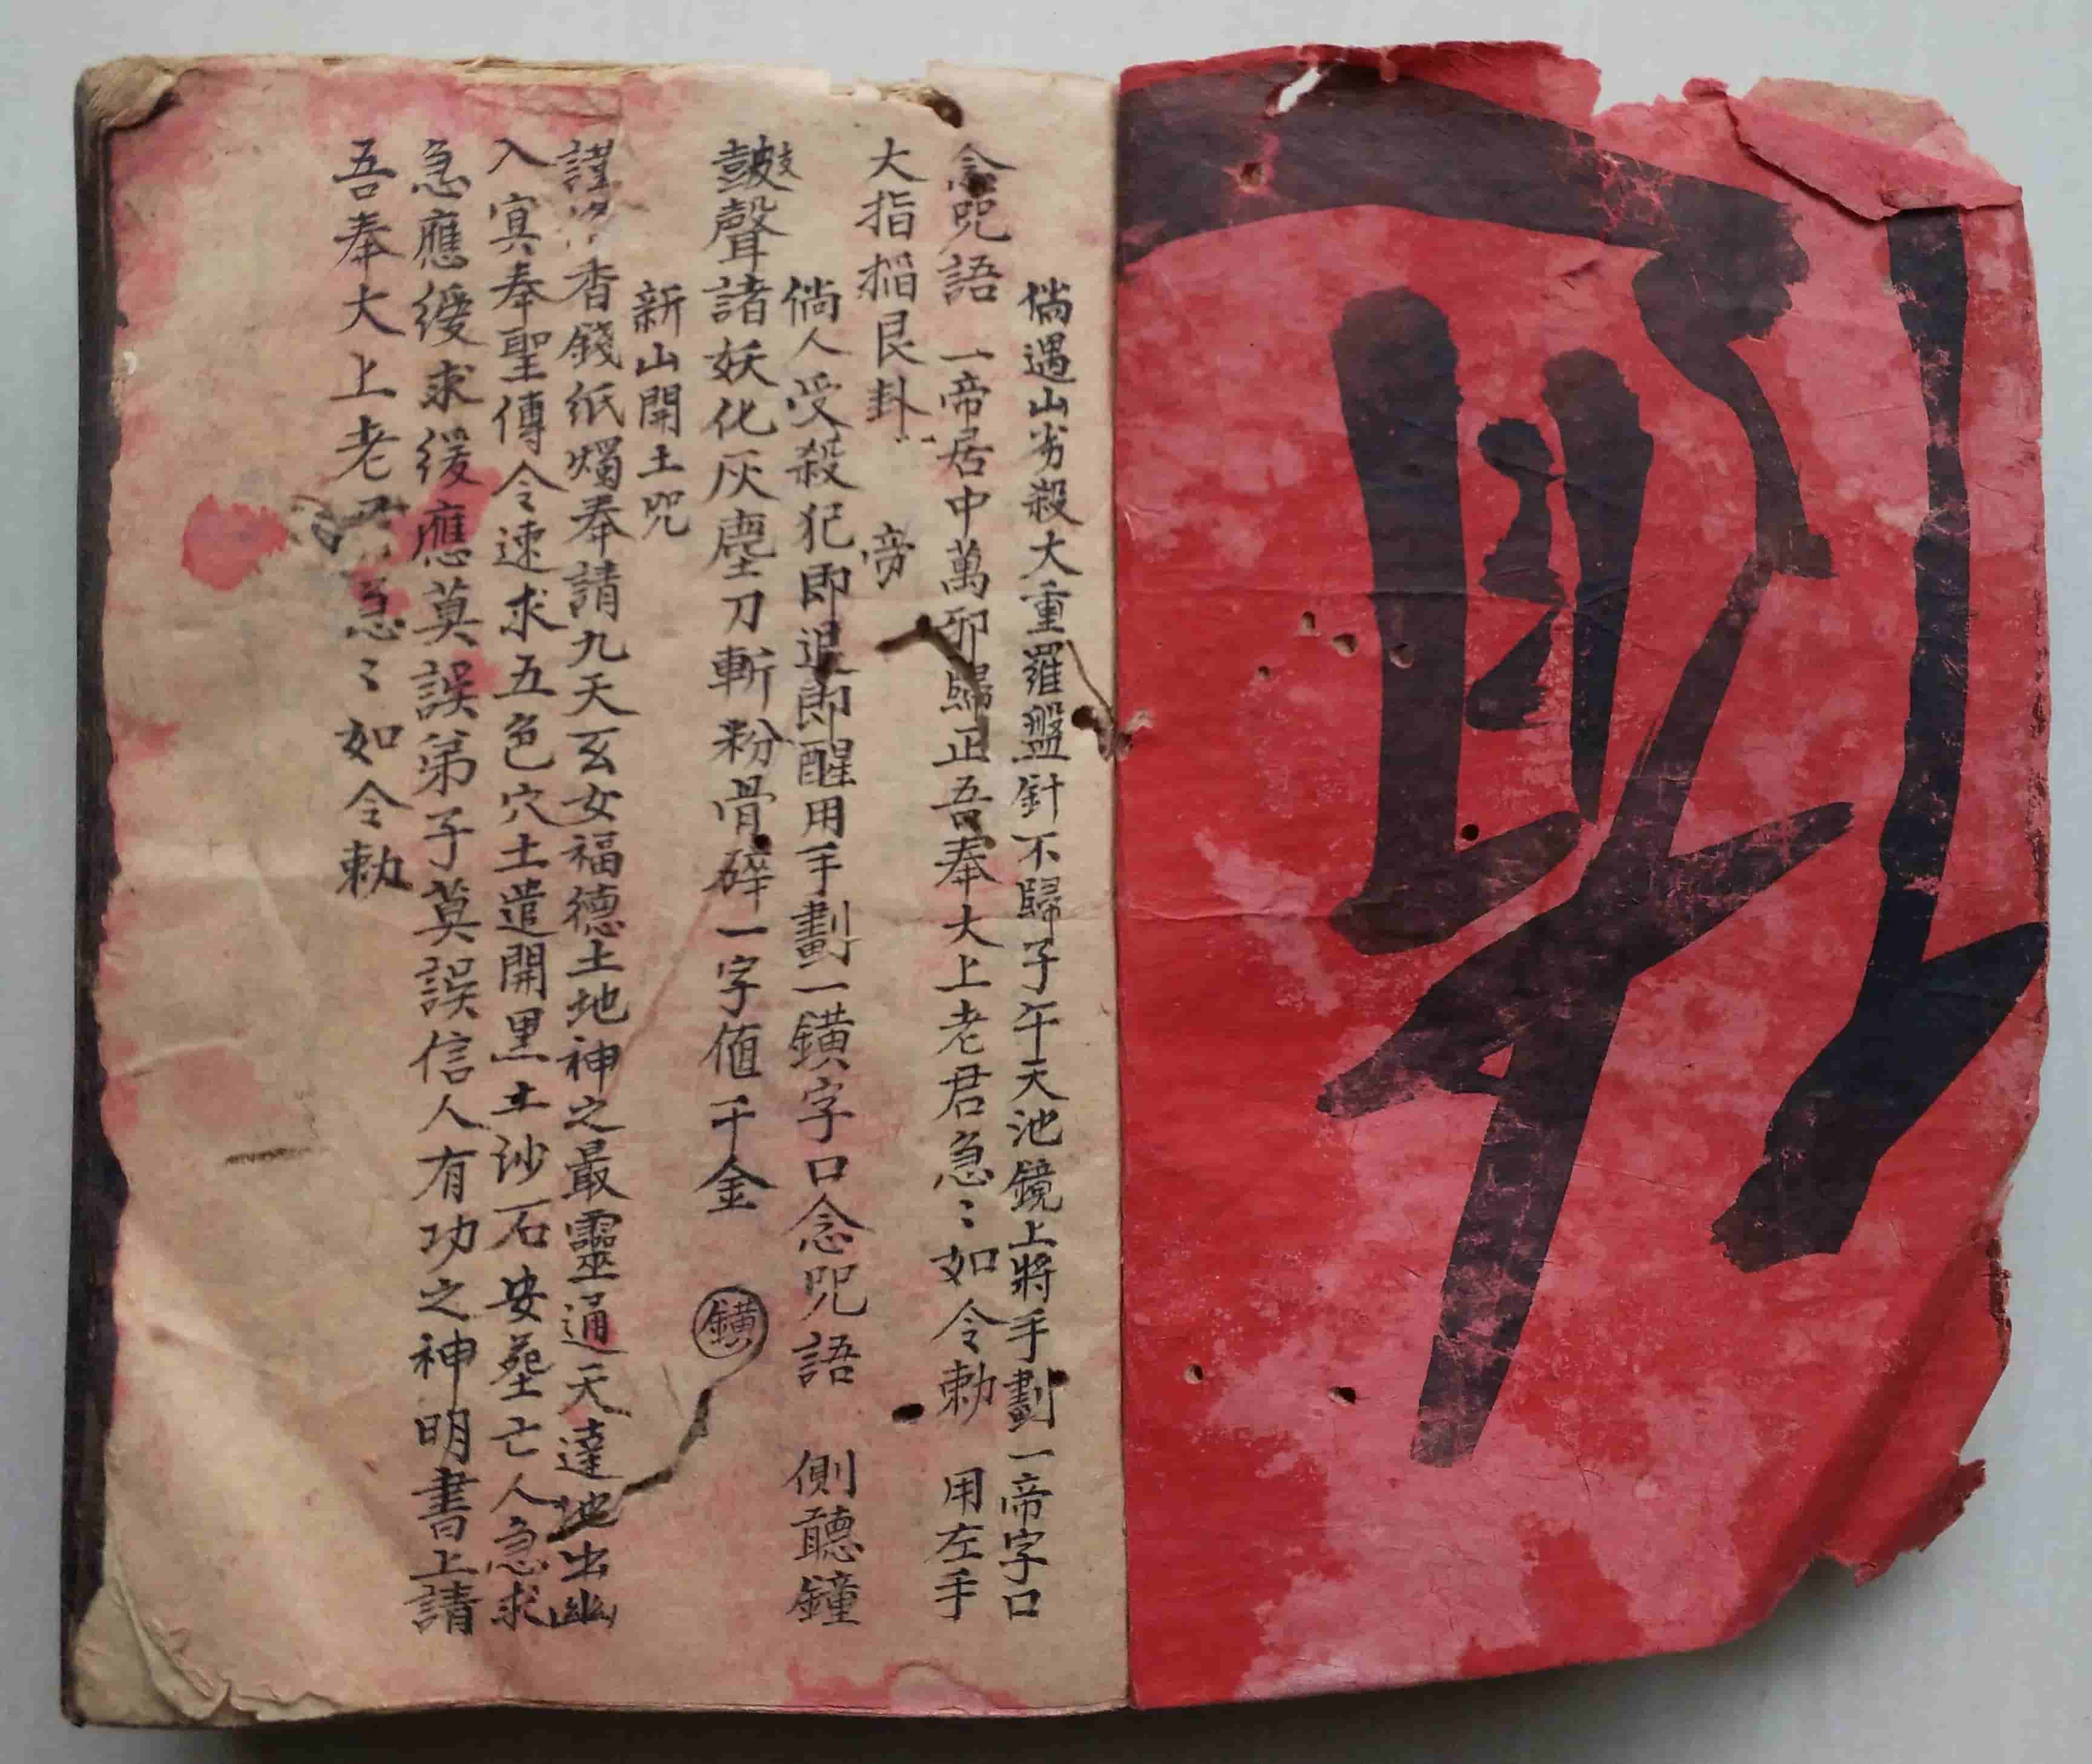 倘遇山劣殺大重羅盤針不歸子午天池鏡上將手劃一帝字口
念咒語 一帝居中萬卯歸正吾奉大上老君急〻如令勅 用左手
大指搯艮卦 帝
倘人受殺犯即退即醒用手劃一鐄字口念咒語 側聽鐘
鼓聲諸妖化灰塵刀斬粉骨碎一字值千金 鐄
新山開土咒
謹 香錢紙燭奉請九天玄女福德土地神之最靈通天達地出幽
入冥奉聖傳令速求五色穴土遣開黑土沙石安塟亡人急求
急應緩求緩應莫誤弟子莫誤信人有功之神明書上請
吾奉大上老 急〻如令勅